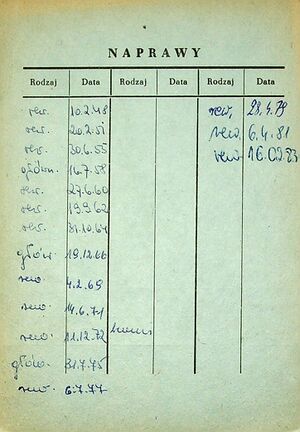 NAPRAWY
Rodzaj Data Rodzaj Data Rodzaj Data
rew. 10.2.48
rew. 20.2.51
rew. 30.6.55
główn. 16.7.58
rew. 27.6.60
rew. 19.9.62
rew. 31.10.64
główn. 19.12.66
rew. 4.2.69
rew. 14.6.71
rew. 11.12.72
główn. 31.7.75
rew. 6.7.77
rew. 28.4.79
rew. 6.4.81
rew. 16.02.83